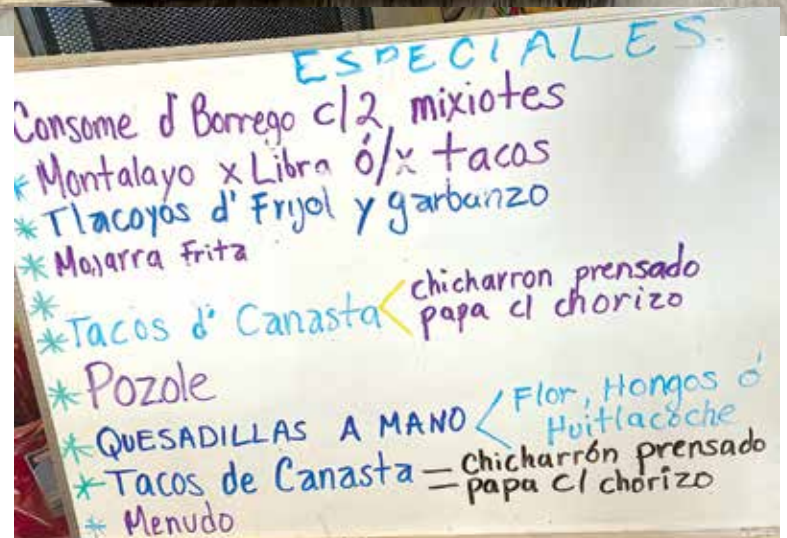 ESPECIALES
Consome d Borrego c/2 mixiotes
* Montalayo x Libra ó/x tacos
* Tlacoyos d' Frijol y garbanzo
* Mojarra Frita
*
* Tacos d' Canasta < chicharron prensado
papa c/ chorizo
* Pozole
* QUESADILLAS A MANO < Flor, Hongos ó
Huitlacoche
* Tacos de Canasta = Chicharrón prensado
papa c/ chorizo
* Menudo